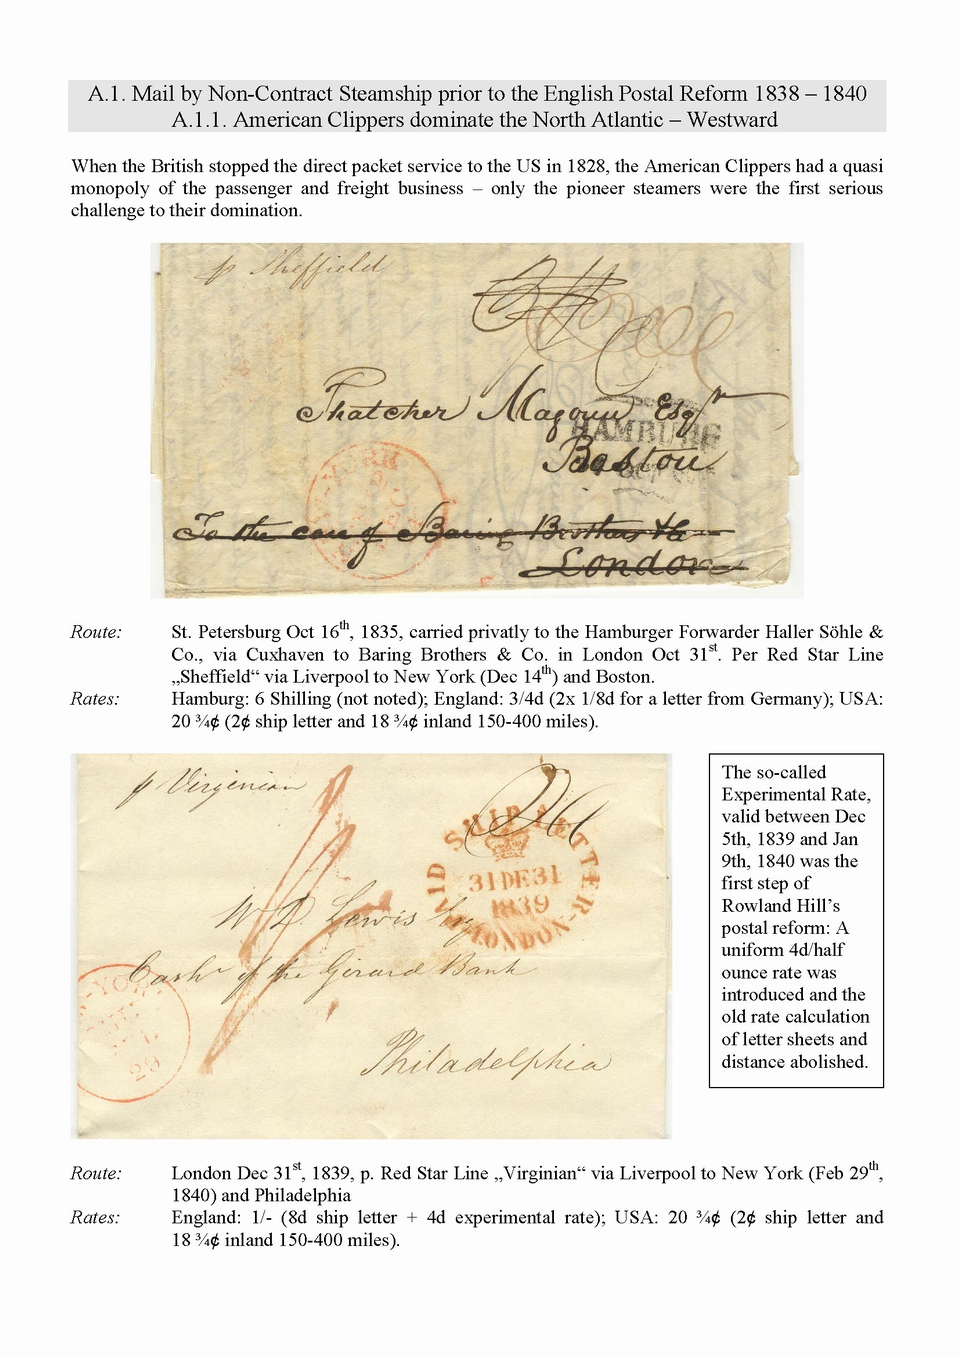 A.1. Mail by Non-Contract Steamship prior to the English Postal Reform 1838 – 1840
A.1.1. American Clippers dominate the North Atlantic – Westward
When the British stopped the direct packet service to the US in 1828, the American Clippers had a quasi
monopoly of the passenger and freight business – only the pioneer steamers were the first serious
challenge to their domination.
p Sheffield
Thatcher Magoun Esqr
HAMBURG
Boston
To the care of Baring Brothers & Co
London
Route: St. Petersburg Oct 16th, 1835, carried privatly to the Hamburger Forwarder Haller Söhle &
Co., via Cuxhaven to Baring Brothers & Co. in London Oct 31st. Per Red Star Line
„Sheffield“ via Liverpool to New York (Dec 14th) and Boston.
Rates: Hamburg: 6 Shilling (not noted); England: 3/4d (2x 1/8d for a letter from Germany); USA:
20 ¾¢ (2¢ ship letter and 18 ¾¢ inland 150-400 miles).
p Virginian
SHIP LETTER
31DE31
1839
LONDON
W D. Lewis Esq
Cashr of the Girard Bank
Philadelphia
The so-called
Experimental Rate,
valid between Dec
5th, 1839 and Jan
9th, 1840 was the
first step of
Rowland Hill’s
postal reform: A
uniform 4d/half
ounce rate was
introduced and the
old rate calculation
of letter sheets and
distance abolished.
Route: London Dec 31st, 1839, p. Red Star Line „Virginian“ via Liverpool to New York (Feb 29th,
1840) and Philadelphia
Rates: England: 1/- (8d ship letter + 4d experimental rate); USA: 20 ¾¢ (2¢ ship letter and
18 ¾¢ inland 150-400 miles).